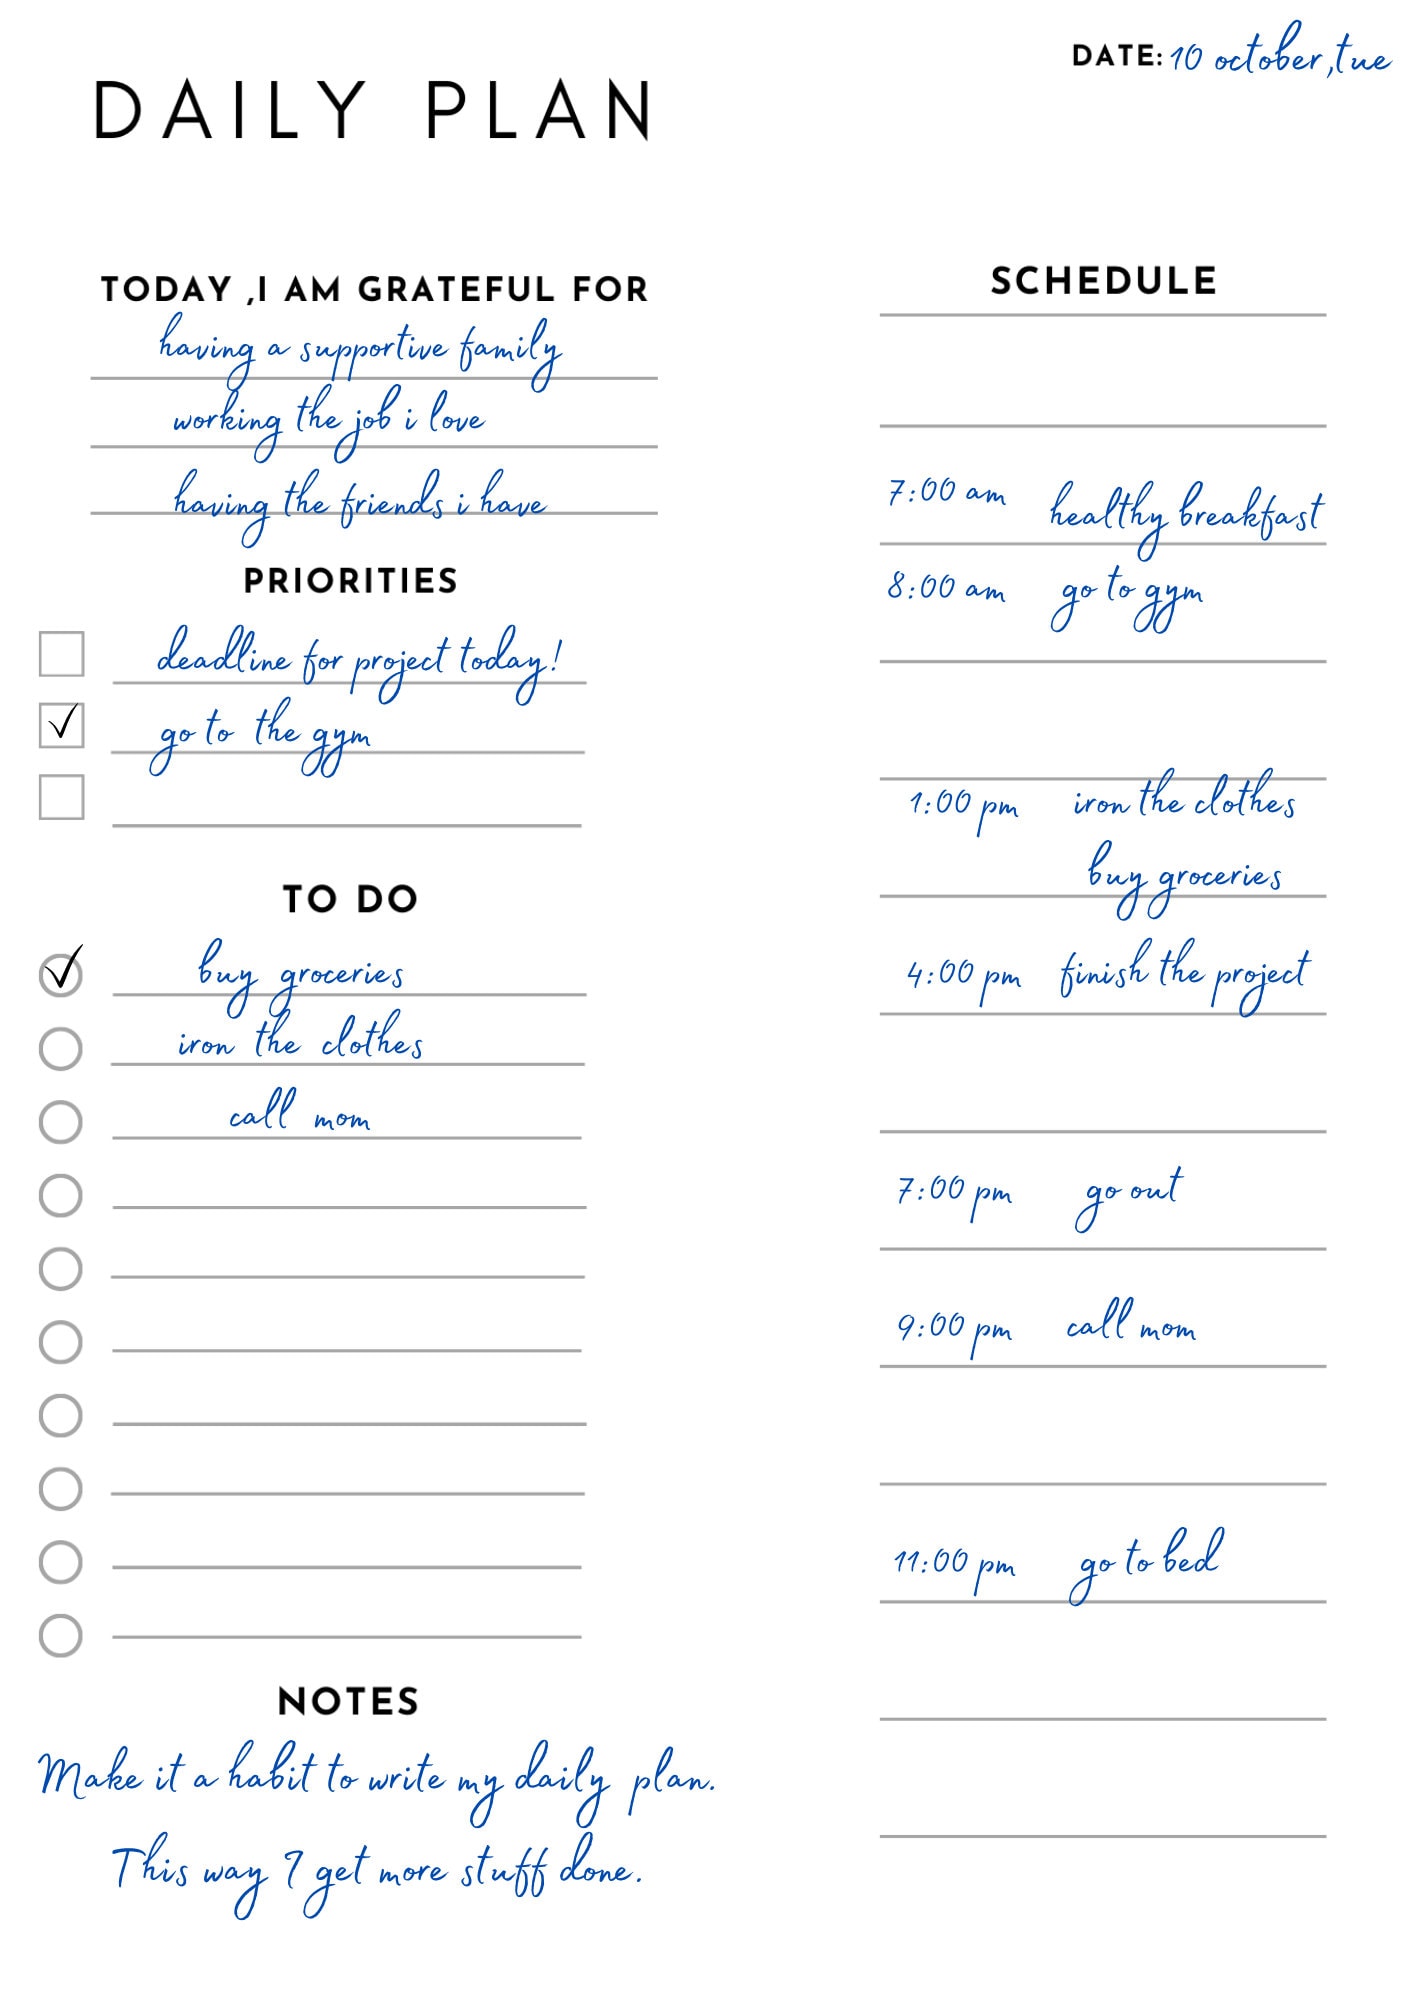 DATE: 10 october,tue
DAILY PLAN
TODAY ,I AM GRATEFUL FOR
having a supportive family
working the job i love
having the friends i have
PRIORITIES
deadline for project today!
go to the gym
TO DO
buy groceries
iron the clothes
call mom
NOTES
Make it a habit to write my daily plan.
This way I get more stuff done.
SCHEDULE
7:00 am healthy breakfast
8:00 am go to gym
1:00 pm iron the clothes
buy groceries
4:00 pm finish the project
7:00 pm go out
9:00 pm call mom
11:00 pm go to bed